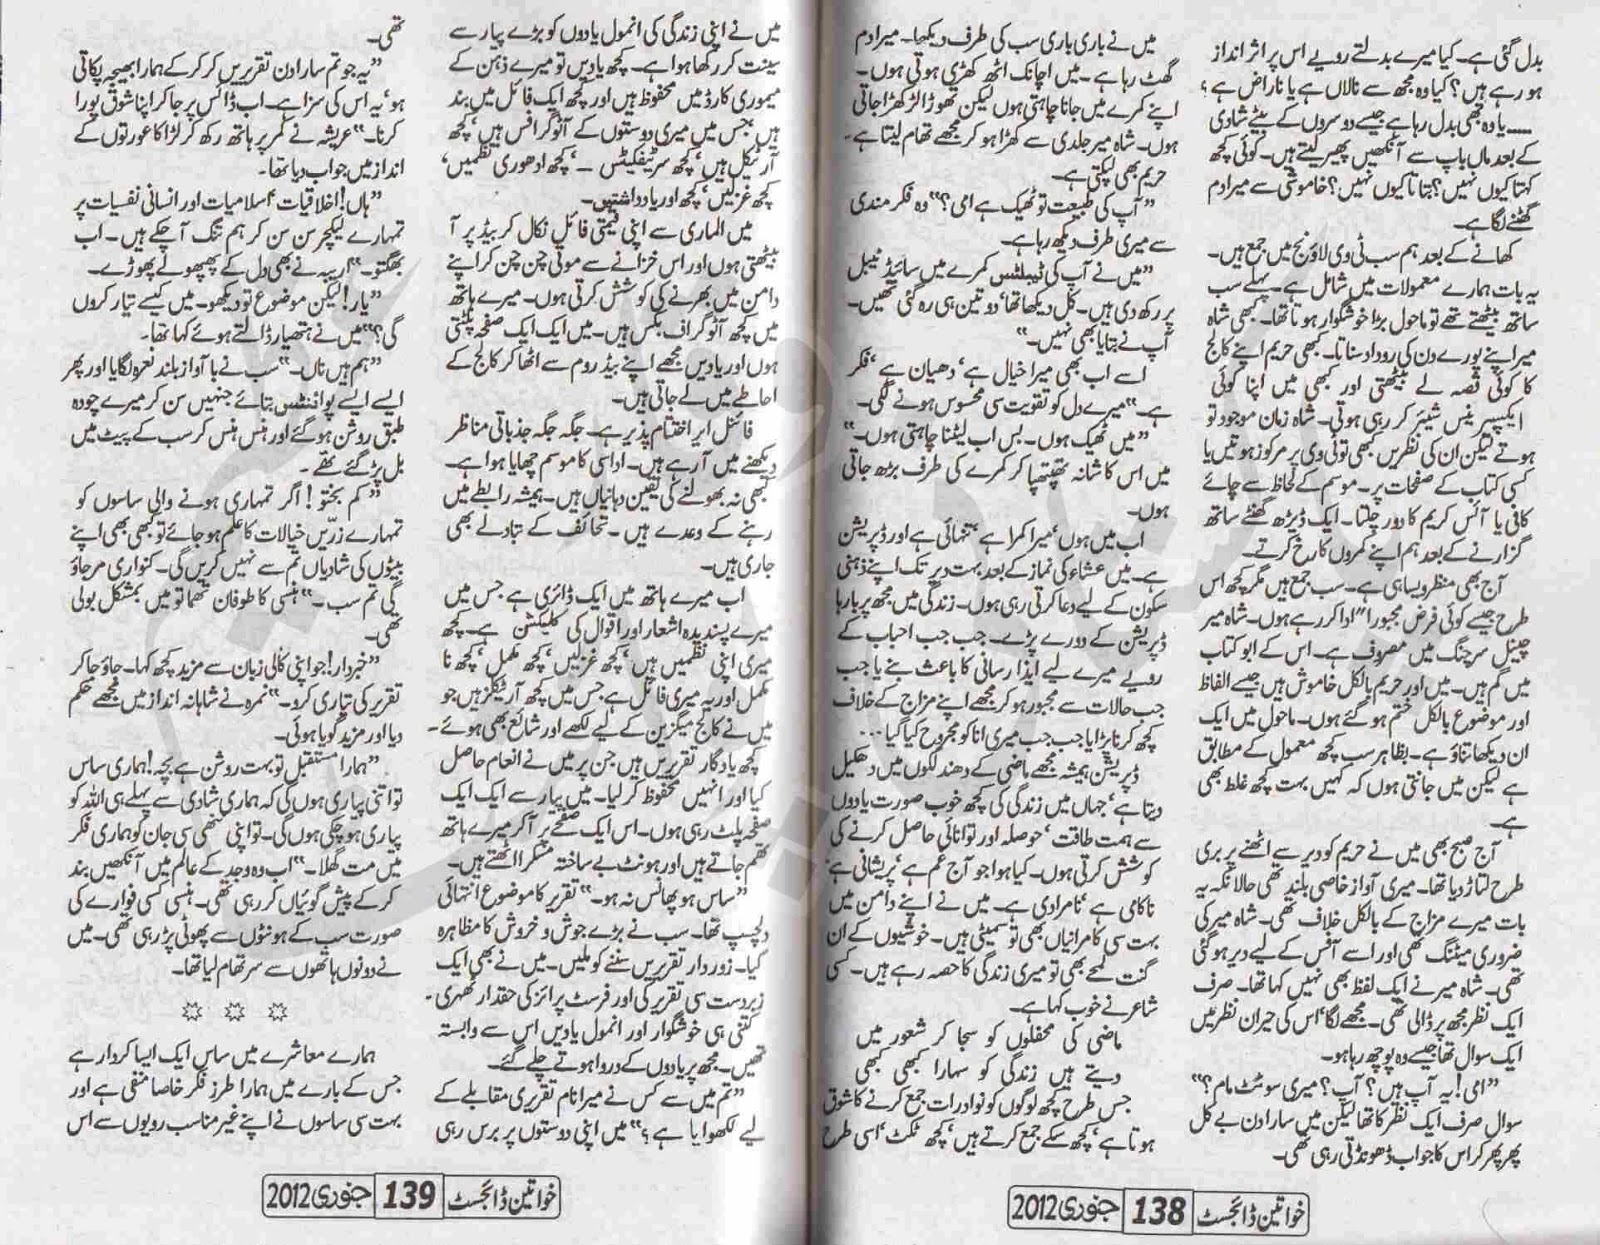 بدل گئی ہے۔ کیا میرے بدلتے رویے اس پر اثر انداز
ہو رہے ہیں؟ کیا وہ مجھ سے نالاں ہے یا ناراض ہے؟
..... یا وہ بھی بدل رہا ہے جیسے دوسروں کے بیٹے شادی
کے بعد ماں باپ سے آنکھیں پھیر لیتے ہیں۔ کوئی کچھ
کہتا کیوں نہیں؟ بتاتا کیوں نہیں؟ خاموشی سے میرا دم
گھٹنے لگا ہے۔
کھانے کے بعد ہم سب ٹی وی لاؤنج میں جمع ہیں۔
یہ بات ہمارے معمولات میں شامل ہے۔ پہلے سب
ساتھ بیٹھتے تھے تو ماحول بڑا خوشگوار ہوتا تھا۔ کبھی شاہ
میر اپنے پورے دن کی روداد سناتا۔ کبھی حریم اپنے کالج
کا کوئی قصہ لے بیٹھتی اور کبھی میں اپنا کوئی
ایکسپیرینس شیئر کر رہی ہوتی۔ شاہ زمان موجود تو
ہوتے لیکن ان کی نظریں کبھی تو ٹی وی پر مرکوز ہوتیں یا
کسی کتاب کے صفحات پر۔ موسم کے لحاظ سے چائے
کافی یا آئس کریم کا دور چلتا۔ ایک ڈیڑھ گھنٹے ساتھ
گزارنے کے بعد ہم اپنے کمروں کا رخ کرتے۔
آج بھی منظر ویسا ہی ہے۔ سب جمع ہیں مگر کچھ اس
طرح جیسے کوئی فرض مجبورا" ادا کر رہے ہوں۔ شاہ میر
چینل سرچنگ میں مصروف ہے۔ اس کے ابو کتاب
میں گم ہیں۔ میں اور حریم بالکل خاموش ہیں جیسے الفاظ
اور موضوع بالکل ختم ہو گئے ہوں۔ ماحول میں ایک
ان دیکھا تناؤ ہے۔ بظاہر سب کچھ معمول کے مطابق
ہے لیکن میں جانتی ہوں کہ کہیں بہت کچھ غلط بھی
ہے۔
آج صبح بھی میں نے حریم کو دیر سے اٹھنے پر بری
طرح لتاڑ دیا تھا۔ میری آواز خاصی بلند تھی حالانکہ یہ
بات میرے مزاج کے بالکل خلاف تھی۔ شاہ میر کی
ضروری میٹنگ تھی اور اسے آفس کے لیے دیر ہو گئی
تھی۔ شاہ میر نے ایک لفظ بھی نہیں کہا تھا۔ صرف
ایک نظر مجھ پر ڈالی تھی۔ مجھے لگا' اس کی حیران نظر میں
ایک سوال تھا جیسے وہ پوچھ رہا ہو۔
"امی! یہ آپ ہیں؟ آپ؟ میری سوئٹ مام؟"
سوال صرف ایک نظر کا تھا لیکن میں سارا دن بے کل
پھر پھر کر اس کا جواب ڈھونڈتی رہی تھی۔
میں نے باری باری سب کی طرف دیکھا۔ میرا دم
گھٹ رہا ہے۔ میں اچانک اٹھ کھڑی ہوتی ہوں۔
اپنے کمرے میں جانا چاہتی ہوں لیکن تھوڑا لڑکھڑا جاتی
ہوں۔ شاہ میر جلدی سے کھڑا ہو کر مجھے تھام لیتا ہے۔
حریم بھی لپکتی ہے۔
"آپ کی طبیعت تو ٹھیک ہے امی؟" وہ فکر مندی
سے میری طرف دیکھ رہا ہے۔
"میں نے آپ کی ٹیبلٹس کمرے میں سائیڈ ٹیبل
پر رکھ دی ہیں۔ کل دیکھا تھا' دو تین ہی رہ گئی تھیں۔
آپ نے بتایا بھی نہیں۔"
اسے اب بھی میرا خیال ہے' دھیان ہے' فکر
ہے۔" میرے دل کو تقویت سی محسوس ہونے لگی۔
"میں ٹھیک ہوں۔ بس اب لیٹنا چاہتی ہوں۔"
میں اس کا شانہ تھپتھپا کر کمرے کی طرف بڑھ جاتی
ہوں۔
اب میں ہوں' میرا کمرا ہے' تنہائی ہے اور ڈپریشن
ہے۔ میں عشاء کی نماز کے بعد بہت دیر تک اپنے ذہنی
سکون کے لیے دعا کرتی رہی ہوں۔ زندگی میں مجھ پر بارہا
ڈپریشن کے دورے پڑے۔ جب جب احباب کے
رویے میرے لیے ایذا رسانی کا باعث بنے یا جب
جب حالات سے مجبور ہو کر مجھے اپنے مزاج کے خلاف
کچھ کرنا پڑا یا جب جب میری انا کو مجروح کیا گیا...
ڈپریشن ہمیشہ مجھے ماضی کے دھندلکوں میں دھکیل
دیتا ہے' جہاں میں زندگی کی کچھ خوب صورت یادوں
سے ہمت طاقت' حوصلہ اور توانائی حاصل کرنے کی
کوشش کرتی ہوں۔ کیا ہوا جو آج غم ہے' پریشانی ہے'
ناکامی ہے' نامرادی ہے۔ میں نے اپنے دامن میں
بہت سی کامرانیاں بھی تو سمیٹی ہیں۔ خوشیوں کے ان
گنت لمحے بھی تو میری زندگی کا حصہ رہے ہیں۔ کسی
شاعر نے خوب کہا ہے۔
ماضی کی محفلوں کو سجا کر شعور میں
دیتے ہیں زندگی کو سہارا کبھی کبھی
جس طرح کچھ لوگوں کو نوادرات جمع کرنے کا شوق
ہوتا ہے' کچھ سکے جمع کرتے ہیں' کچھ ٹکٹ' اسی طرح
خواتین ڈائجسٹ 138 جنوری 2012
میں نے اپنی زندگی کی انمول یادوں کو بڑے پیار سے
سینت کر رکھا ہوا ہے۔ کچھ یادیں تو میرے ذہن کے
میموری کارڈ میں محفوظ ہیں اور کچھ ایک فائل میں بند
ہیں' جس میں میری دوستوں کے آٹو گرافس ہیں' کچھ
آرٹیکل ہیں' کچھ سرٹیفکیٹس۔' کچھ ادھوری نظمیں'
کچھ غزلیں' کچھ اور یادداشتیں۔
میں الماری سے اپنی قیمتی فائل نکال کر بیڈ پر آ
بیٹھتی ہوں اور اس خزانے سے موتی چن چن کر اپنے
دامن میں بھرنے کی کوشش کرتی ہوں۔ میرے ہاتھ
میں کچھ آٹو گراف بکس ہیں۔ میں ایک ایک صفحہ پلٹتی
ہوں اور یادیں مجھے اپنے بیڈ روم سے اٹھا کر کالج کے
احاطے میں لے جاتی ہیں۔
فائنل ایر اختتام پذیر ہے۔ جگہ جگہ جذباتی مناظر
دیکھنے میں آ رہے ہیں۔ اداسی کا موسم چھایا ہوا ہے۔
کبھی نہ بھولنے کی یقین دہانیاں ہیں۔ ہمیشہ رابطے میں
رہنے کے وعدے ہیں۔ تحائف کے تبادلے بھی
جاری ہیں۔
اب میرے ہاتھ میں ایک ڈائری ہے جس میں
میرے پسندیدہ اشعار اور اقوال کی کلیکشن ہے۔ کچھ
میری اپنی نظمیں ہیں' کچھ غزلیں' کچھ مکمل' کچھ نا
مکمل اور یہ میری فائل ہے جس میں کچھ آرٹیکلز ہیں جو
میں نے کالج میگزین کے لیے لکھے اور شائع بھی ہوئے۔
کچھ یادگار تقریریں ہیں جن پر میں نے انعام حاصل
کیا اور انہیں محفوظ کر لیا۔ میں پیار سے ایک ایک
صفحہ پلٹ رہی ہوں۔ اس ایک صفحے پر آ کر میرے ہاتھ
تھم جاتے ہیں اور ہونٹ بے ساختہ مسکرا اٹھتے ہیں۔
"ساس ہو پھانس نہ ہو۔" تقریر کا موضوع انتہائی
دلچسپ تھا۔ سب نے بڑے جوش و خروش کا مظاہرہ
کیا۔ زور دار تقریریں سننے کو ملیں۔ میں نے بھی ایک
زبردست سی تقریر کی اور فرسٹ پرائز کی حقدار ٹھہری۔
کتنی ہی خوشگوار اور انمول یادیں اس سے وابستہ
تھیں۔ مجھ پر یادوں کے در وا ہوتے چلے گئے۔
"تم میں سے کس نے میرا نام تقریری مقابلے کے
لیے لکھوایا ہے؟" میں اپنی دوستوں پر برس رہی
تھی۔
"یہ جو تم سارا دن تقریریں کر کر کے ہمارا بھیجہ پکاتی
ہو' یہ اس کی سزا ہے۔ اب ڈائس پر جا کر اپنا شوق پورا
کرنا۔" عریشہ نے کمر پر ہاتھ رکھ کر لڑاکا عورتوں کے
انداز میں جواب دیا تھا۔
"ہاں! اخلاقیات' اسلامیات اور انسانی نفسیات پر
تمہارے لیکچر سن سن کر ہم تنگ آ چکے ہیں۔ اب
بھگتو۔" اریبہ نے بھی دل کے پھپھولے پھوڑے۔
"یار! لیکن موضوع تو دیکھو۔ میں کیسے تیار کروں
گی؟" میں نے ہتھیار ڈالتے ہوئے کہا تھا۔
"ہم ہیں ناں۔" سب نے باآواز بلند نعرہ لگایا اور پھر
ایسے ایسے پوائنٹس بتائے جنہیں سن کر میرے چودہ
طبق روشن ہو گئے اور ہنس ہنس کر سب کے پیٹ میں
بل پڑ گئے تھے۔
"کم بختو! اگر تمہاری ہونے والی ساسوں کو
تمہارے زرّیں خیالات کا علم ہو جائے تو کبھی بھی اپنے
بیٹوں کی شادیاں تم سے نہیں کریں گی۔ کنواری مر جاؤ
گی تم سب۔" ہنسی کا طوفان تھما تو میں بمشکل بولی
تھی۔
"خبردار! جو اپنی کالی زبان سے مزید کچھ کہا۔ جاؤ جا کر
تقریر کی تیاری کرو۔" نمرہ نے شاہانہ انداز میں مجھے حکم
دیا اور مزید گویا ہوئی۔
"ہمارا مستقبل تو بہت روشن ہے بچہ! ہماری ساس
تو اتنی پیاری ہوں گی کہ ہماری شادی سے پہلے ہی اللہ کو
پیاری ہو چکی ہوں گی۔ تو اپنی ننھی سی جان کو ہماری فکر
میں مت گھلا۔" اب وہ وجد کے عالم میں آنکھیں بند
کر کے پیش گوئیاں کر رہی تھی۔ ہنسی کسی فوارے کی
صورت سب کے ہونٹوں سے پھوٹی پڑ رہی تھی۔ میں
نے دونوں ہاتھوں سے سر تھام لیا تھا۔
ہمارے معاشرے میں ساس ایک ایسا کردار ہے
جس کے بارے میں ہمارا طرز فکر خاصا منفی ہے اور
بہت سی ساسوں نے اپنے غیر مناسب رویوں سے اس
خواتین ڈائجسٹ 139 جنوری 2012